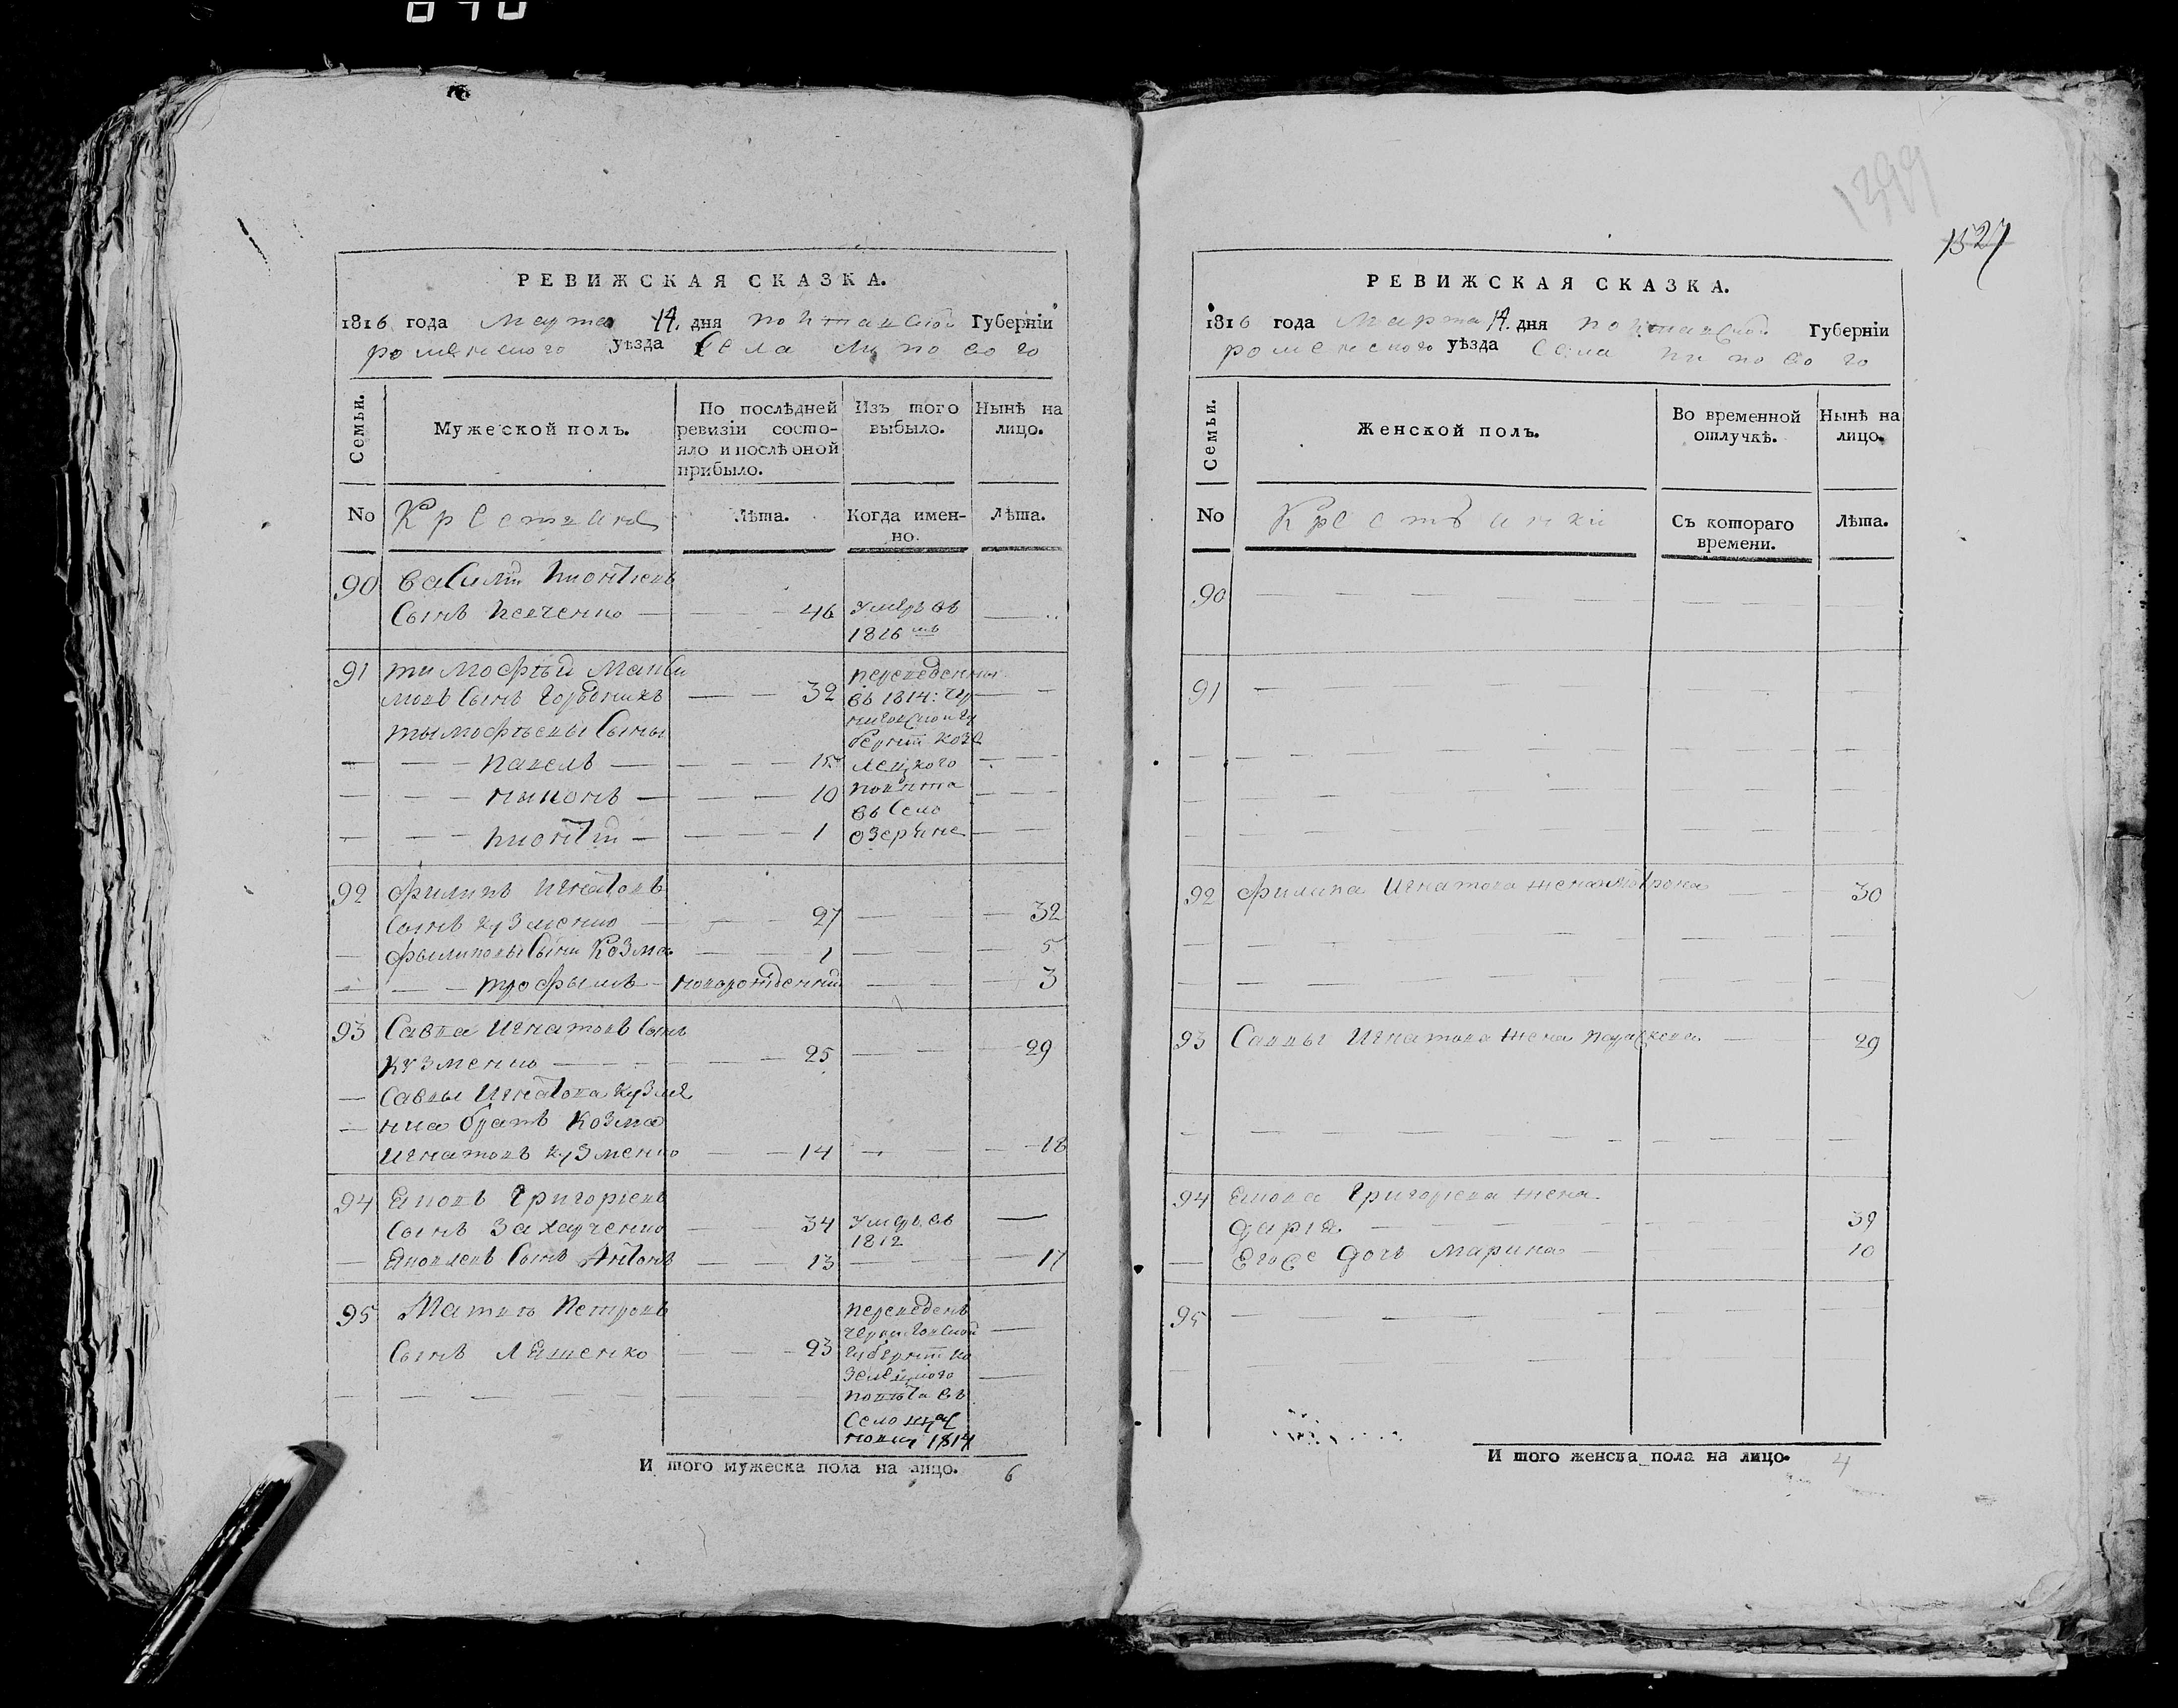 1399
1527
РЕВИЖСКАЯ СКАЗКА.
1816 года Марта 14. дня Полтавской Губерніи
роменского уѣзда Села Липового
Семьи.
Мужеской полъ.
По послѣдней ревизіи состо-
яло и послѣ оной
прибыло.
Изъ того
выбыло.
Нынѣ на
лицо.
No
Крестяне
Лѣта.
Когда имен-
но.
Лѣта.
90 Василій
Сынъ 46 умеръ въ
1816
91 тимофѣй
Сынъ 32 переведенны
въ 1814: Чер
ниговской гу
тымофѣевы Сыны
берніи козе
павелъ 15 лецкого
10 повѣта
въ Село
1 озеряне
92 Филипъ Игнатовъ
Сынъ кузменко 27 32
Филиповы Сыны Козма 1 5
трофымъ новорожденный 3
93 Савка Игнатовъ Сынъ
кузменко 25 29
Савки Игнатова кузме
нка братъ Козма
Игнатовъ кузменко 14 18
94 Яковъ Григорьевъ
Сынъ Захарченко 34 умеръ въ
1812
Яковлевъ Сынъ Антонъ 13 17
95 Матвѣй Петровъ
переведенъ
Черниговской
Сынъ Ляшенко 23 губерніи ко
зелецкого
повѣта въ
Село
1814
И того мужеска пола на лицо. 6
РЕВИЖСКАЯ СКАЗКА.
1816 года Марта 14. дня Полтавской Губерніи
роменского уѣзда Села Липового
Семьи.
Женской полъ.
Во временной
отлучкѣ.
Нынѣ на
лицо.
No
Крестянки
Съ котораго
времени.
Лѣта.
90
91
92 Филипа Игнатова жена Мотрона 30
93 Савки Игнатова жена параскева 29
94 Якова Григорьева жена
Дарія 39
Егоже дочь Марина 10
95
И того женска пола на лицо. 4